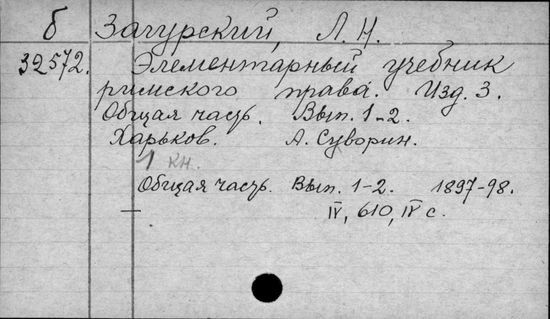 б Загурский, Л. Н.
32572. Элементарный учебник
римского права. Изд. 3.
Общая часть. Вып. 1-2.
Харьков. А. Суворин.
1 кн.
Общая часть. Вып. 1-2. 1897-98.
IV, 610, IV с.